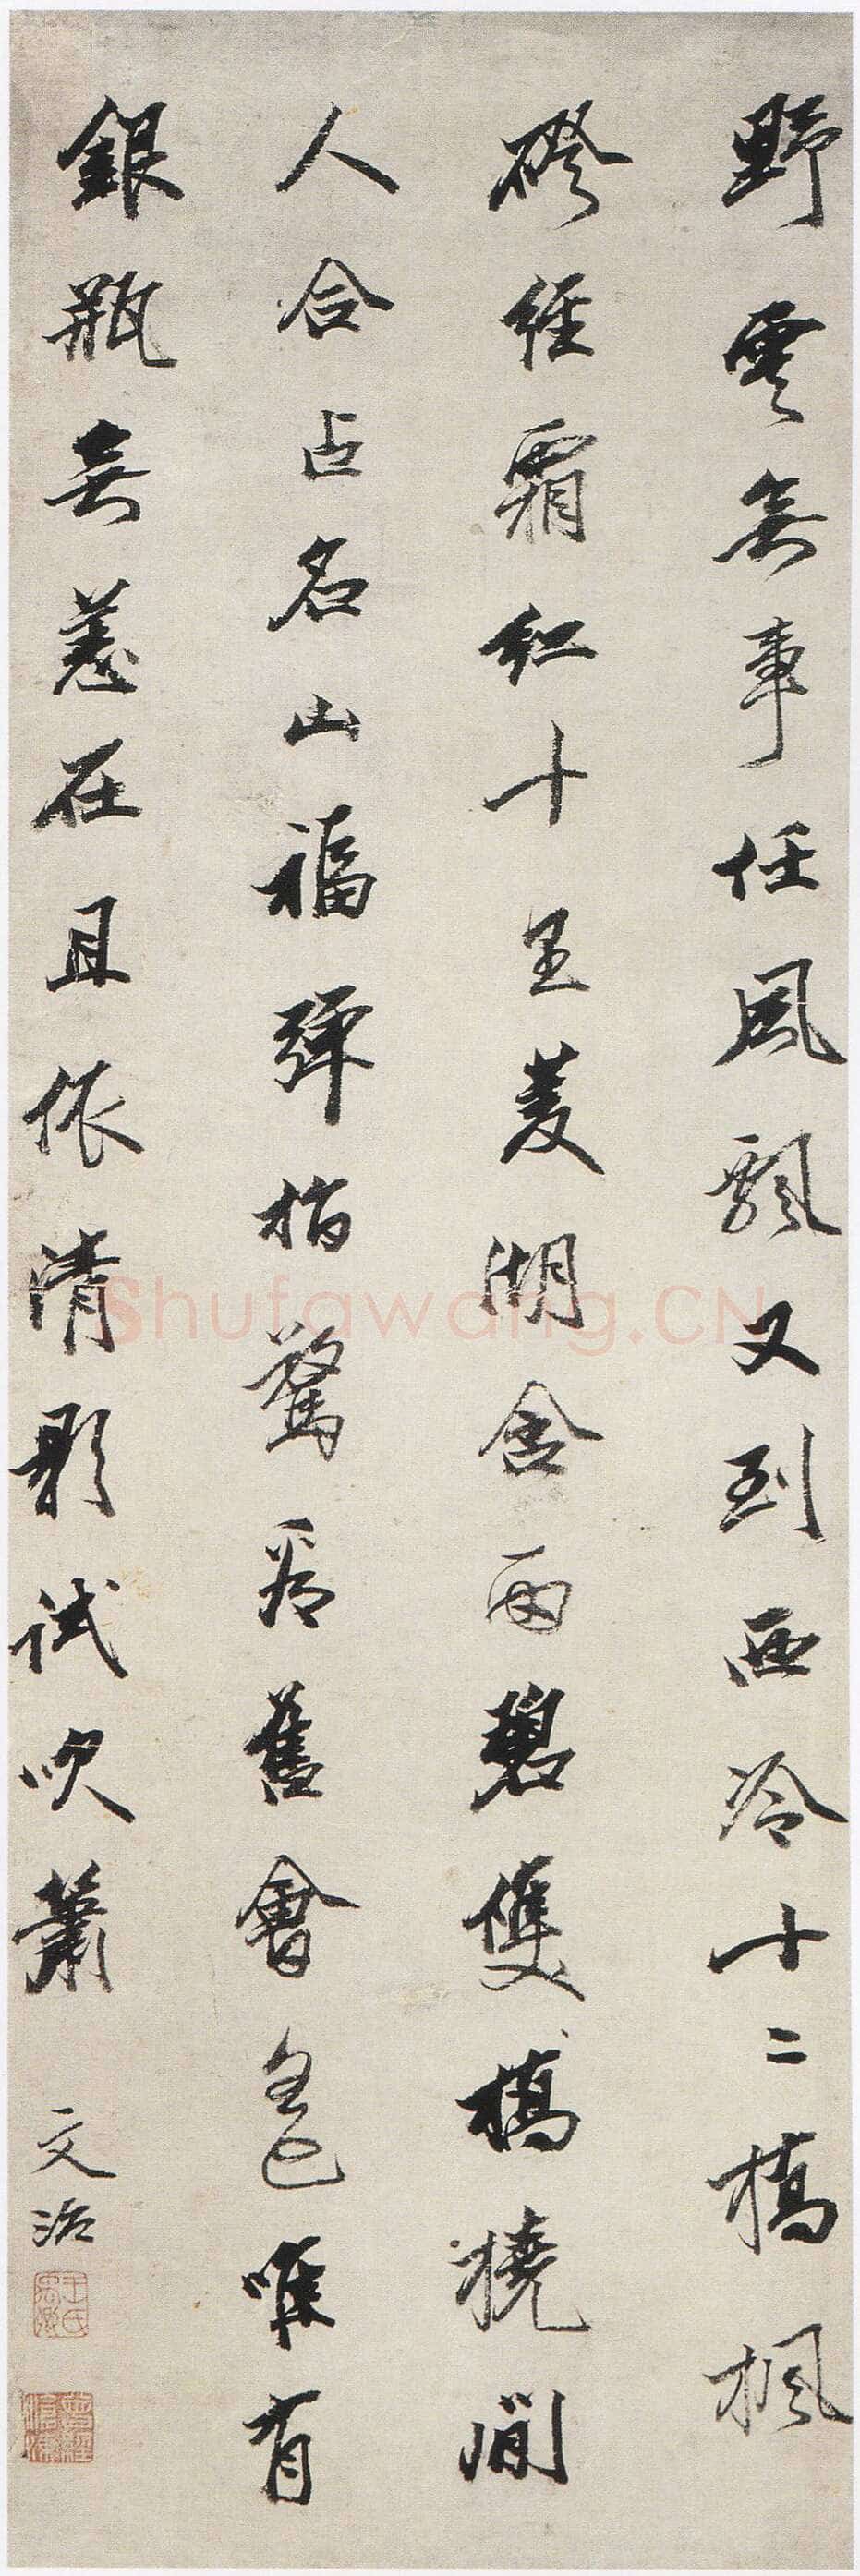 野雲無事任風飄又到西泠十二橋楓
磴經霜紅十里菱湖含雨碧雙橋橈閒
人合占名山福彈指驚看舊會唯有
銀瓶無恙在且依清影試吹簫
文治
王氏禹卿
曾經滄海
Shufawang.CN